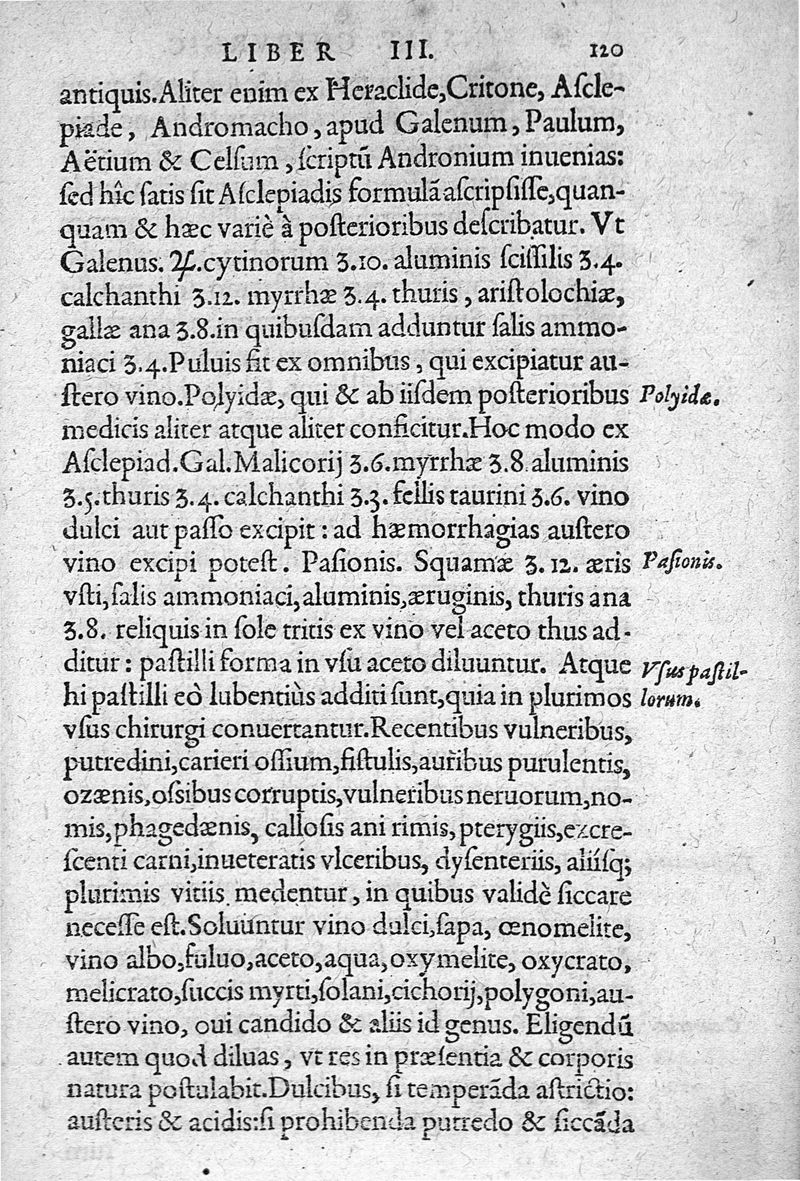 LIBER III. 120
antiquis.Aliter enim ex Heraclide,Critone, Aſcle-
piade, Andromacho, apud Galenum, Paulum,
Aëtium & Celſum, ſcriptū Andronium inuenias:
ſed hîc ſatis ſit Aſclepiadis formulā aſcripſiſſe,quan-
quam & hæc variè à poſterioribus deſcribatur. Vt
Galenus. ♃.cytinorum ʒ.10. aluminis ſciſſilis ʒ.4.
calchanthi ʒ.12. myrrhæ ʒ.4. thuris, ariſtolochiæ,
gallæ ana ʒ.8.in quibuſdam adduntur ſalis ammo-
niaci ʒ.4.Puluis fit ex omnibus, qui excipiatur au-
ſtero vino.Polyidæ, qui & ab iiſdem poſterioribus
Polyidæ.
medicis aliter atque aliter conficitur.Hoc modo ex
Aſclepiad.Gal.Malicorij ʒ.6.myrrhæ ʒ.8.aluminis
ʒ.5.thuris ʒ.4. calchanthi ʒ.3. fellis taurini ʒ.6. vino
dulci aut paſſo excipit: ad hæmorrhagias auſtero
vino excipi poteſt. Paſionis. Squamæ ʒ.12. æris
Paſionis.
vſti,ſalis ammoniaci,aluminis,æruginis, thuris ana
ʒ.8. reliquis in ſole tritis ex vino vel aceto thus ad-
ditur: paſtilli forma in vſu aceto diluuntur. Atque
Vſus paſtil-
hi paſtilli eò lubentiùs additi ſunt,quia in plurimos
lorum.
vſus chirurgi conuertantur.Recentibus vulneribus,
putredini,carieri oſſium,fiſtulis,auribus purulentis,
ozænis,oſsibus corruptis,vulneribus neruorum,no-
mis,phagedænis, calloſis ani rimis,pterygiis,excre-
ſcenti carni,inueteratis vlceribus, dyſenteriis, aliíſq;
plurimis vitiis medentur, in quibus validè ſiccare
neceſſe eſt.Soluuntur vino dulci,ſapa, œnomelite,
vino albo,fuluo,aceto,aqua,oxymelite, oxycrato,
melicrato,ſuccis myrti,ſolani,cichorij,polygoni,au-
ſtero vino, oui candido & aliis id genus. Eligendū
autem quod diluas, vt res in præſentia & corporis
natura poſtulabit.Dulcibus, ſi temperāda aſtrictio:
auſteris & acidis:ſi prohibenda putredo & ſiccāda